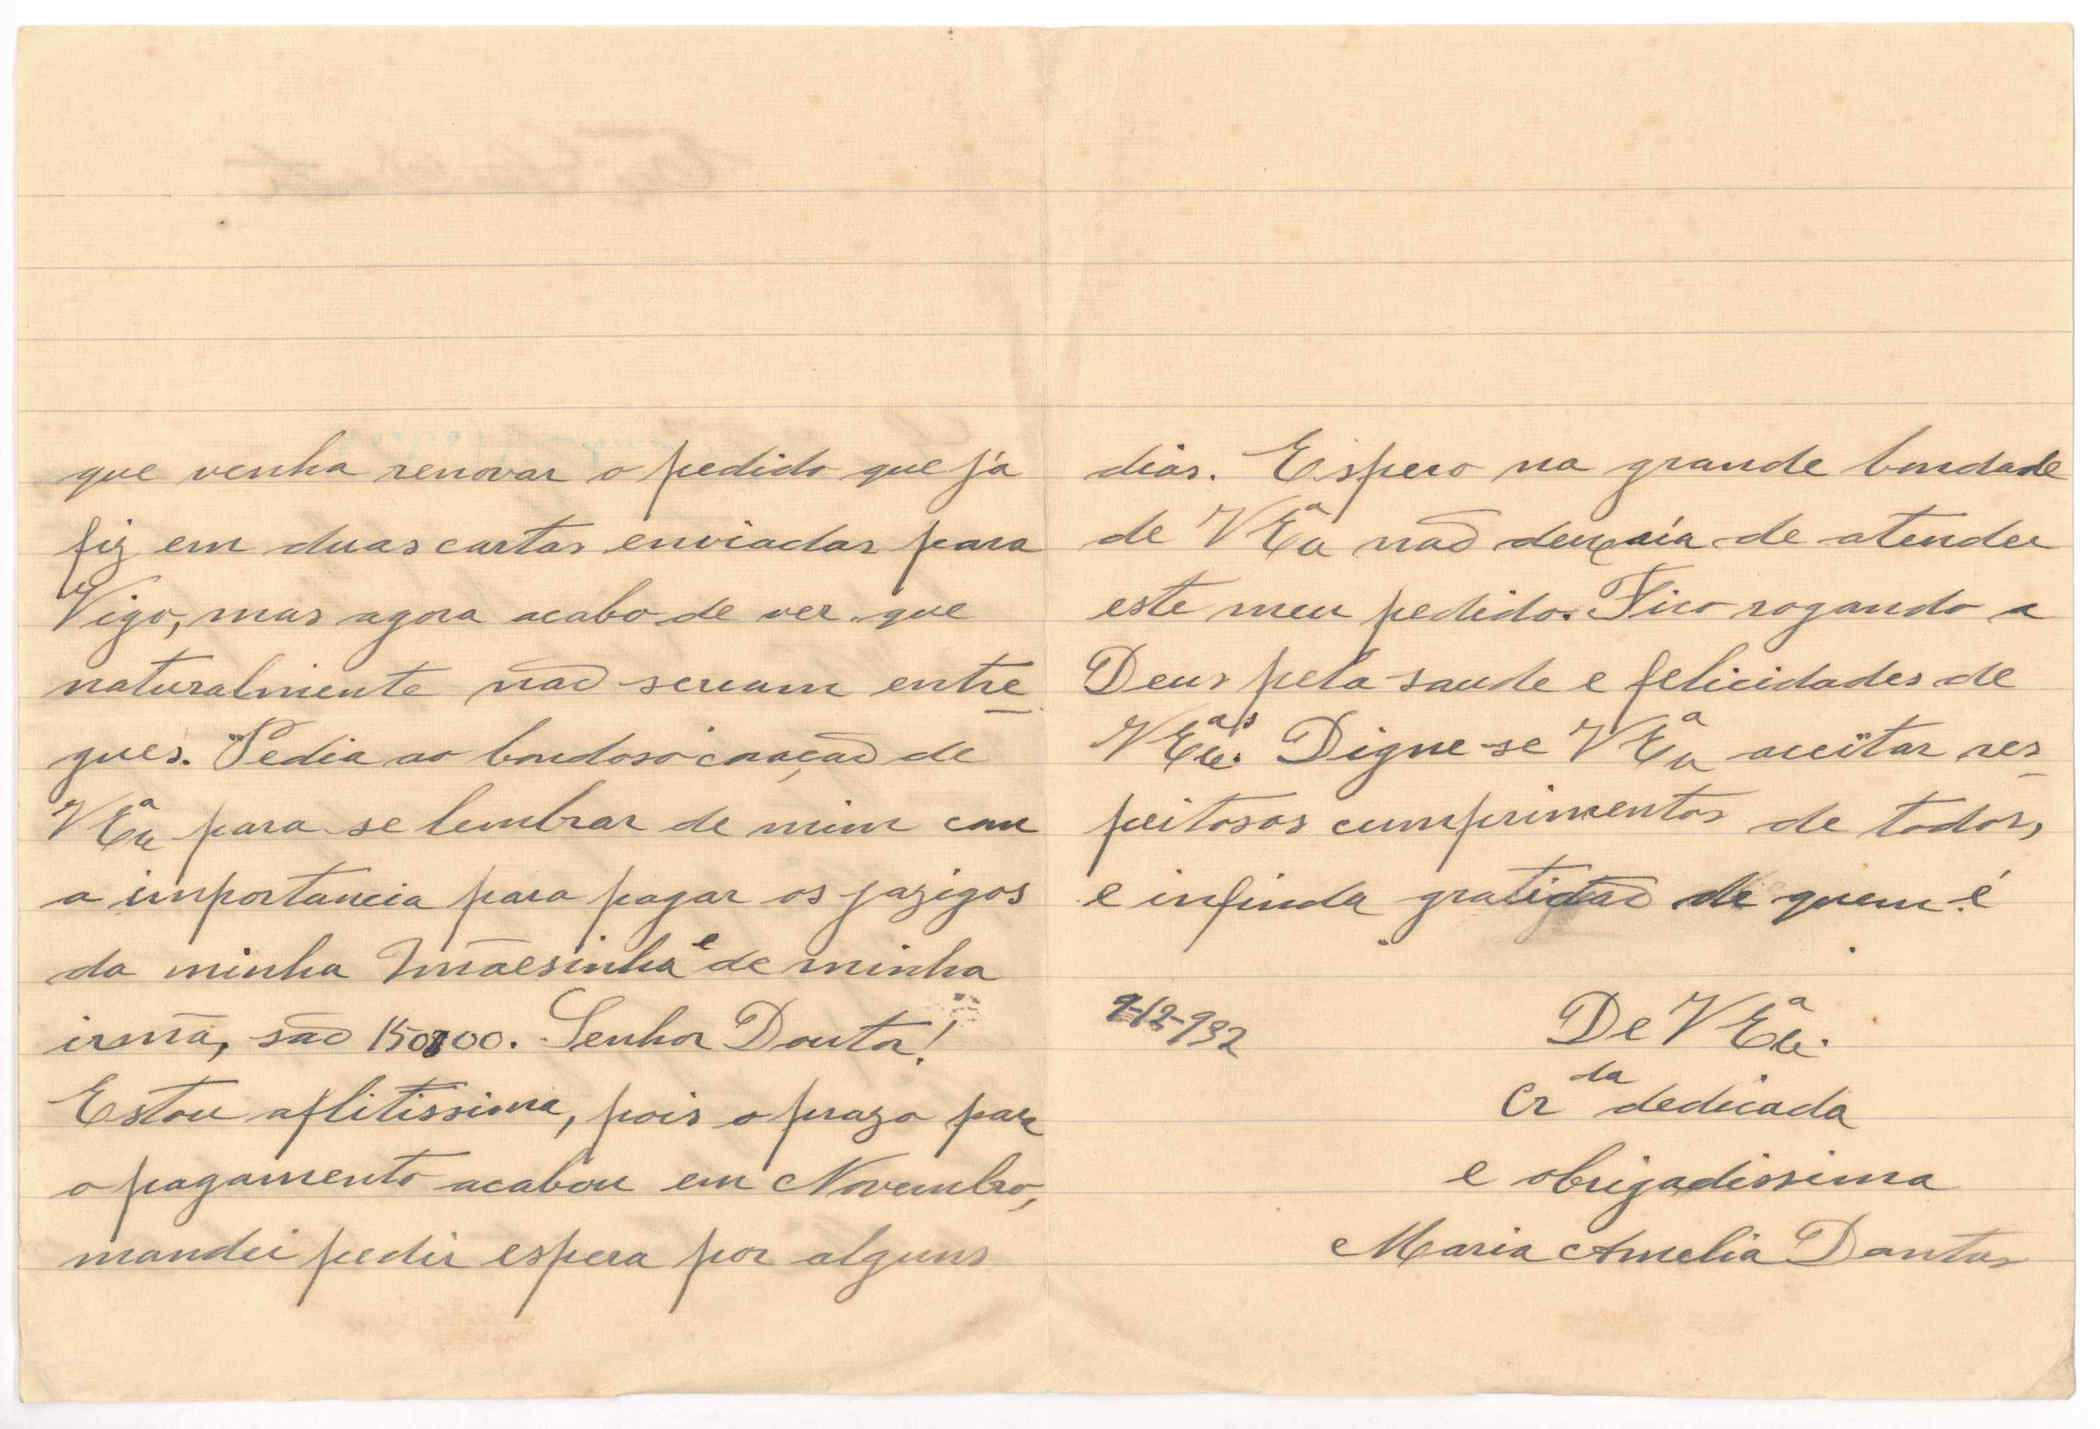 que venha renovar o pedido que já
fiz em duas cartas enviadas para
Vigo, mas agora acabo de ver que
naturalmente não seriam entre
gues. Pedia ao bondoso coração de
V Exª para se lembrar de mim com
a importancia para pagar os jazigos
da minha Mãesinha e de minha
irmã, são 150$00. Senhor Doutor!
Estou aflitissima, pois o prazo para
o pagamento acabou em Novembro,
mandei pedir espera por alguns
dias. Espero na grande bondade
de V Exª não deixaía de atender
este meu pedido. Fico rogando a
Deus pela saude e felicidades de
V Exªs. Digne-se V Exª aceitar res
peitosos cumprimentos de todos,
e infinda gratidão de quem é
9-12-932
De V Exª.
Crda dedicada
e obrigadissima
Maria Amelia Dantas